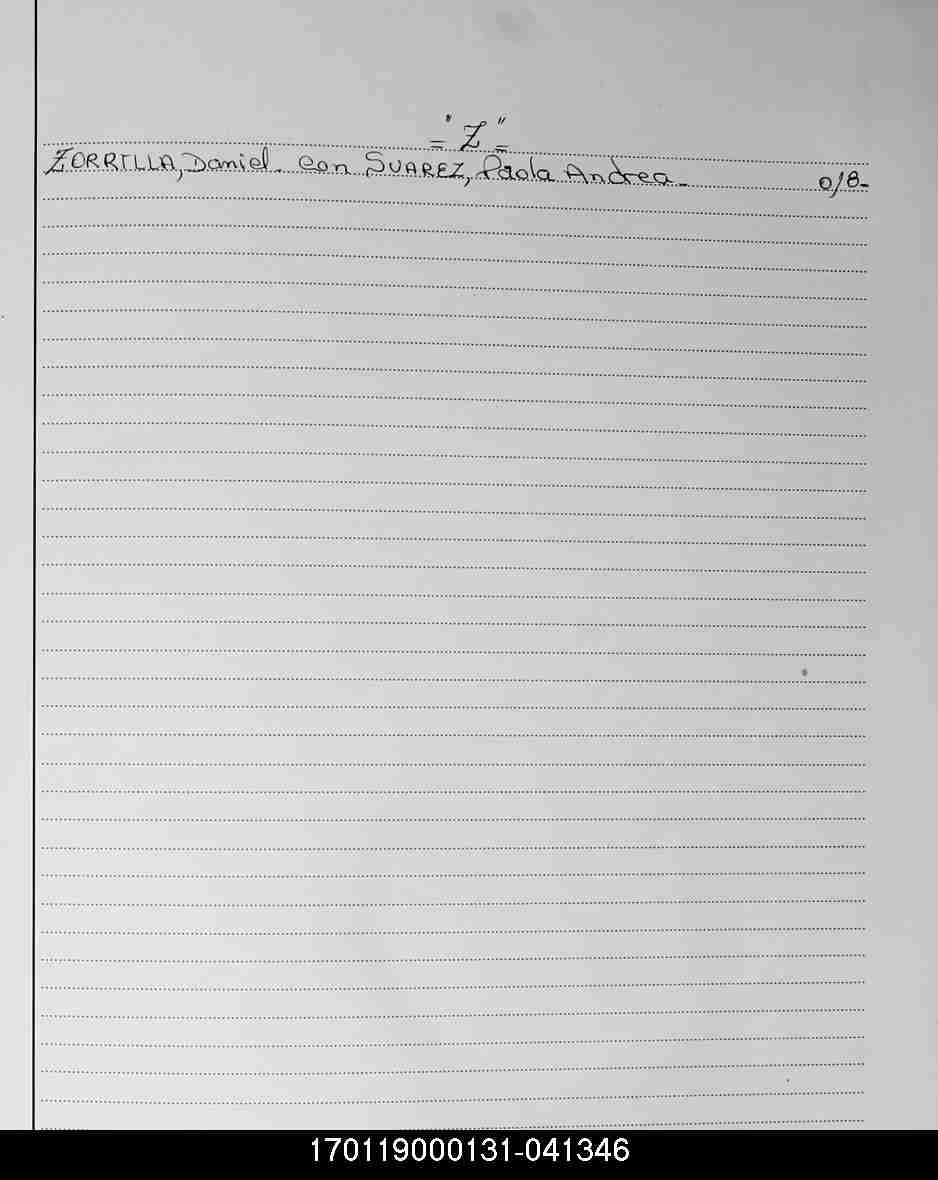 ="Z"=
ZORRILLA, Daniel. con SUAREZ, Paola Andrea- 018-
170119000131-041346